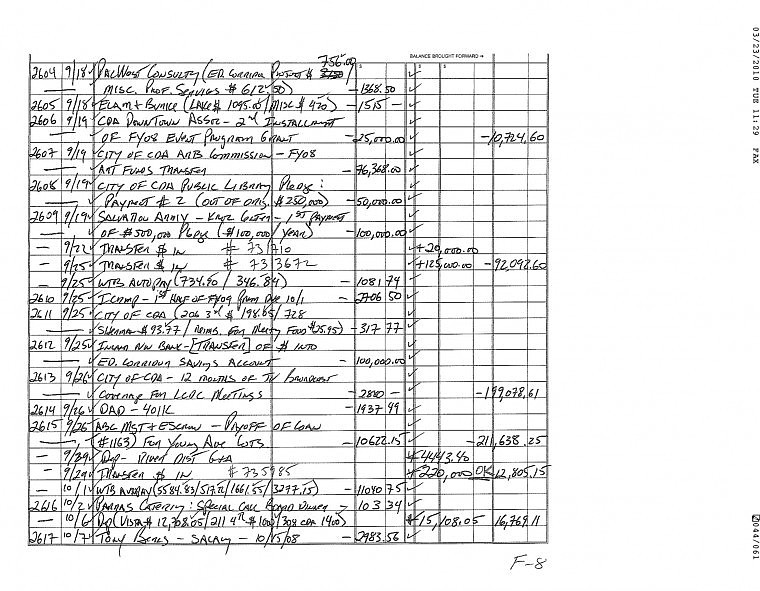 BALANCE BROUGHT FORWARD →
03/23/2010 TUE 11:29 FAX
756.00
2604 9/18 PacWest Consultg (Ed. Corridor Project $ /
— MISC. PROF. SERVICES $ 612.50) -1368.50
2605 9/18 ELAM + BURKE (LAKE $ 1095.00/MISC $ 420) -1515 -
2606 9/19 CDA DOWNTOWN ASSOC - 2nd INSTALLMENT
— OF FY08 EVENT PROGRAM GRANT -25,000.00 -10,724.60
2607 9/19 CITY OF CDA ARTS COMMISSION - FY08
— ART FUNDS TRANSFER -76,368.00
2608 9/19 CITY OF CDA PUBLIC LIBRARY Pledge:
— PAYMENT # 2 (OUT OF ORIG. $250,000) -50,000.00
2609 9/19 SALVATION ARMY - KROC CENTER - 1ST PAYMENT
— OF $500,000 Pledge ($100,000/YEAR) -100,000.00
— 9/22 TRANSFER $ IN # 731710 +20,000.00
— 9/25 TRANSFER $ IN # 733672 +125,000.00 -92,092.60
— 9/25 WTB AUTOPAY (734.90 / 346.84) -1081 74
2610 9/25 - 1ST HALF OF FY09 Due 10/1 -2706 50
2611 9/25 CITY OF CDA (206 3rd $ 198.05/728
— SHERMAN $93.77 / REIMB. FOR Meeting FOOD $25.95) -317 77
2612 9/25 INLAND NW BANK-[TRANSFER] OF $ INTO
— ED. CORRIDOR SAVINGS ACCOUNT -100,000.00
2613 9/26 CITY OF CDA - 12 MONTHS OF TV Broadcast
— COVERAGE FOR LCDC MEETINGS -2800 - -199,078.61
2614 9/26 DAD - 401K -1937 99
2615 9/26 ABC MGT + ESCROW - PAYOFF OF LOAN
— (#1163) FOR YOUNG AVE LOTS -10622.15 -211,638.25
— 9/29 Dep - RIVER DIST +4443.40
— 9/29 TRANSFER $ IN # 735985 +220,000 OK 12,805.15
— 10/1 WTB AUTOPAY (5584.83/517.22/1661.55/3277.15) -11040 75
2616 10/2 CATERING: SPECIAL CALL BOARD DINNER - 103 34
— 10/6 Dep (VISTA $ 12,708.05/211 4th $1000/308 CDA 1400) +15,108.05 16,769.11
2617 10/7 TONY BERNS - SALARY - 10/15/08 -2983.56
F-8
044/061